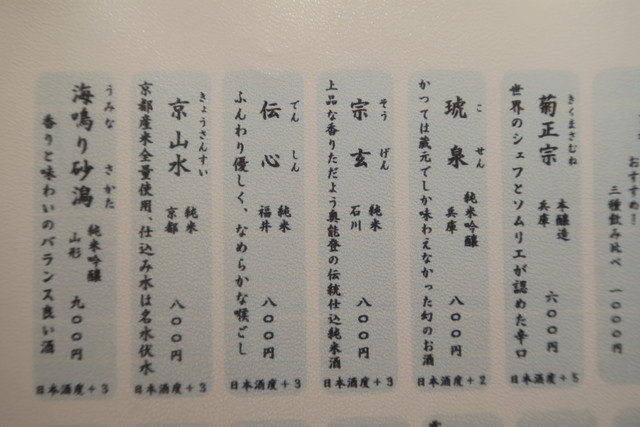 おすすめ！
三種飲み比べ 一〇〇〇円
きくまさむね
菊正宗 本醸造 兵庫 六〇〇円
世界のシェフとソムリエが認めた辛口
日本酒度+5
こ せん
琥泉 純米吟醸 兵庫 八〇〇円
かつては蔵元でしか味わえなかった幻のお酒
日本酒度+2
そう げん
宗玄 純米 石川 八〇〇円
上品な香りただよう奥能登の伝統仕込純米酒
日本酒度+3
でん しん
伝心 純米 福井 八〇〇円
ふんわり優しく、なめらかな喉ごし
日本酒度+3
きょうさんすい
京山水 純米 京都 八〇〇円
京都産米全量使用、仕込み水は名水伏水
日本酒度+3
うみな さかた
海鳴り砂潟 純米吟醸 山形 九〇〇円
香りと味わいのバランス良い酒
日本酒度+3